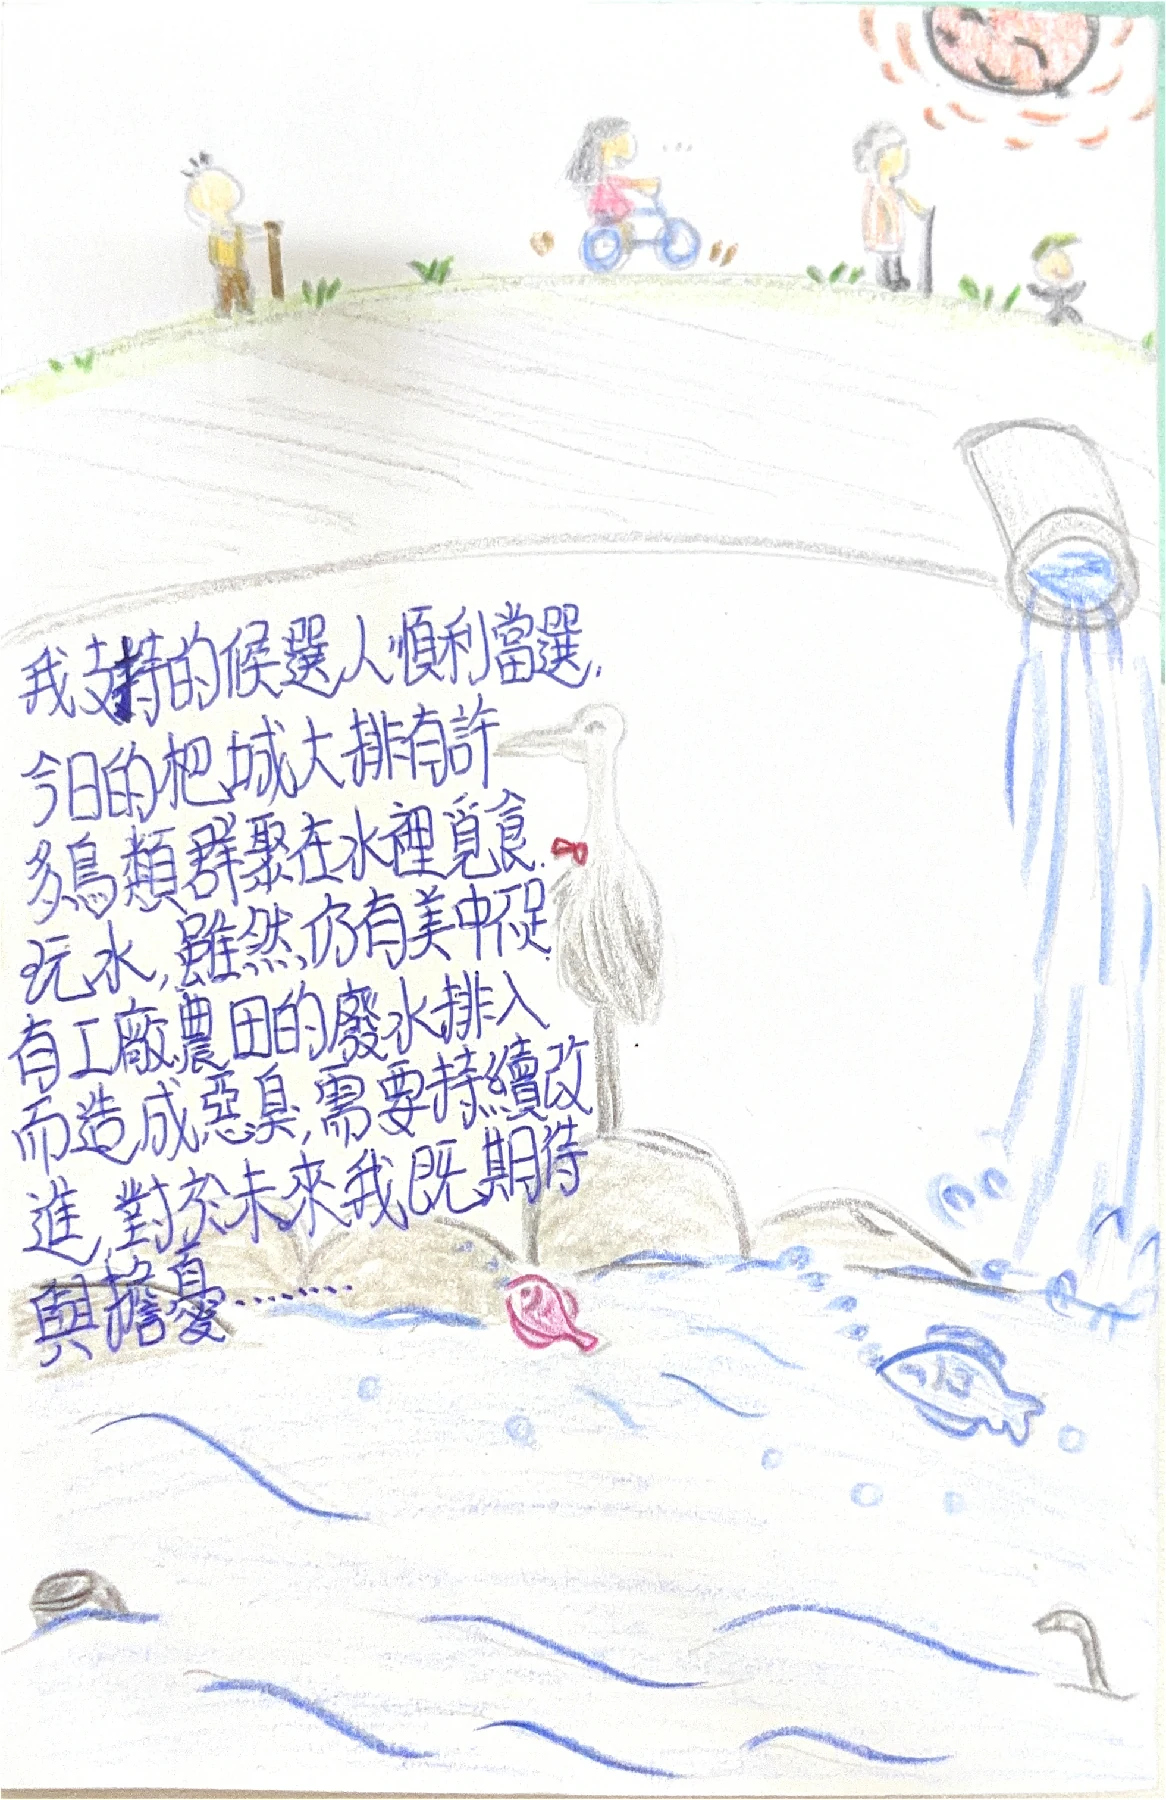 我支持的候選人順利當選,
今日的把城大排有許
多鳥類群聚在水裡覓食.
玩水,雖然仍有美中不足
有工廠農田的廢水排入
而造成惡臭,需要持續改
進,對於未來我既期待
與擔憂........